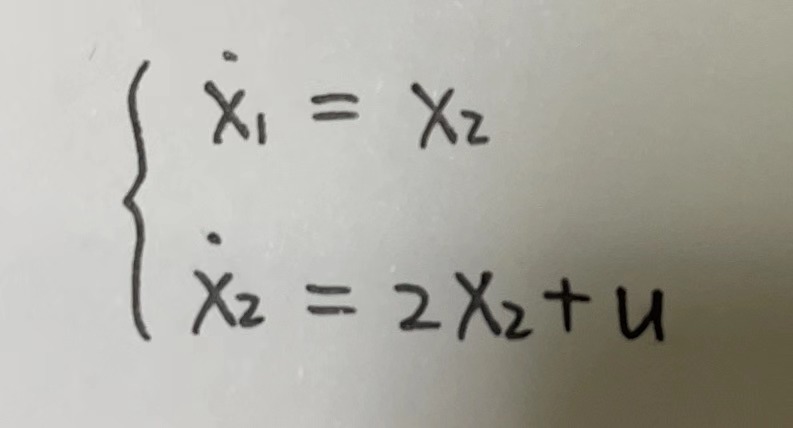 ẋ₁ = x₂
ẋ₂ = 2x₂ + u